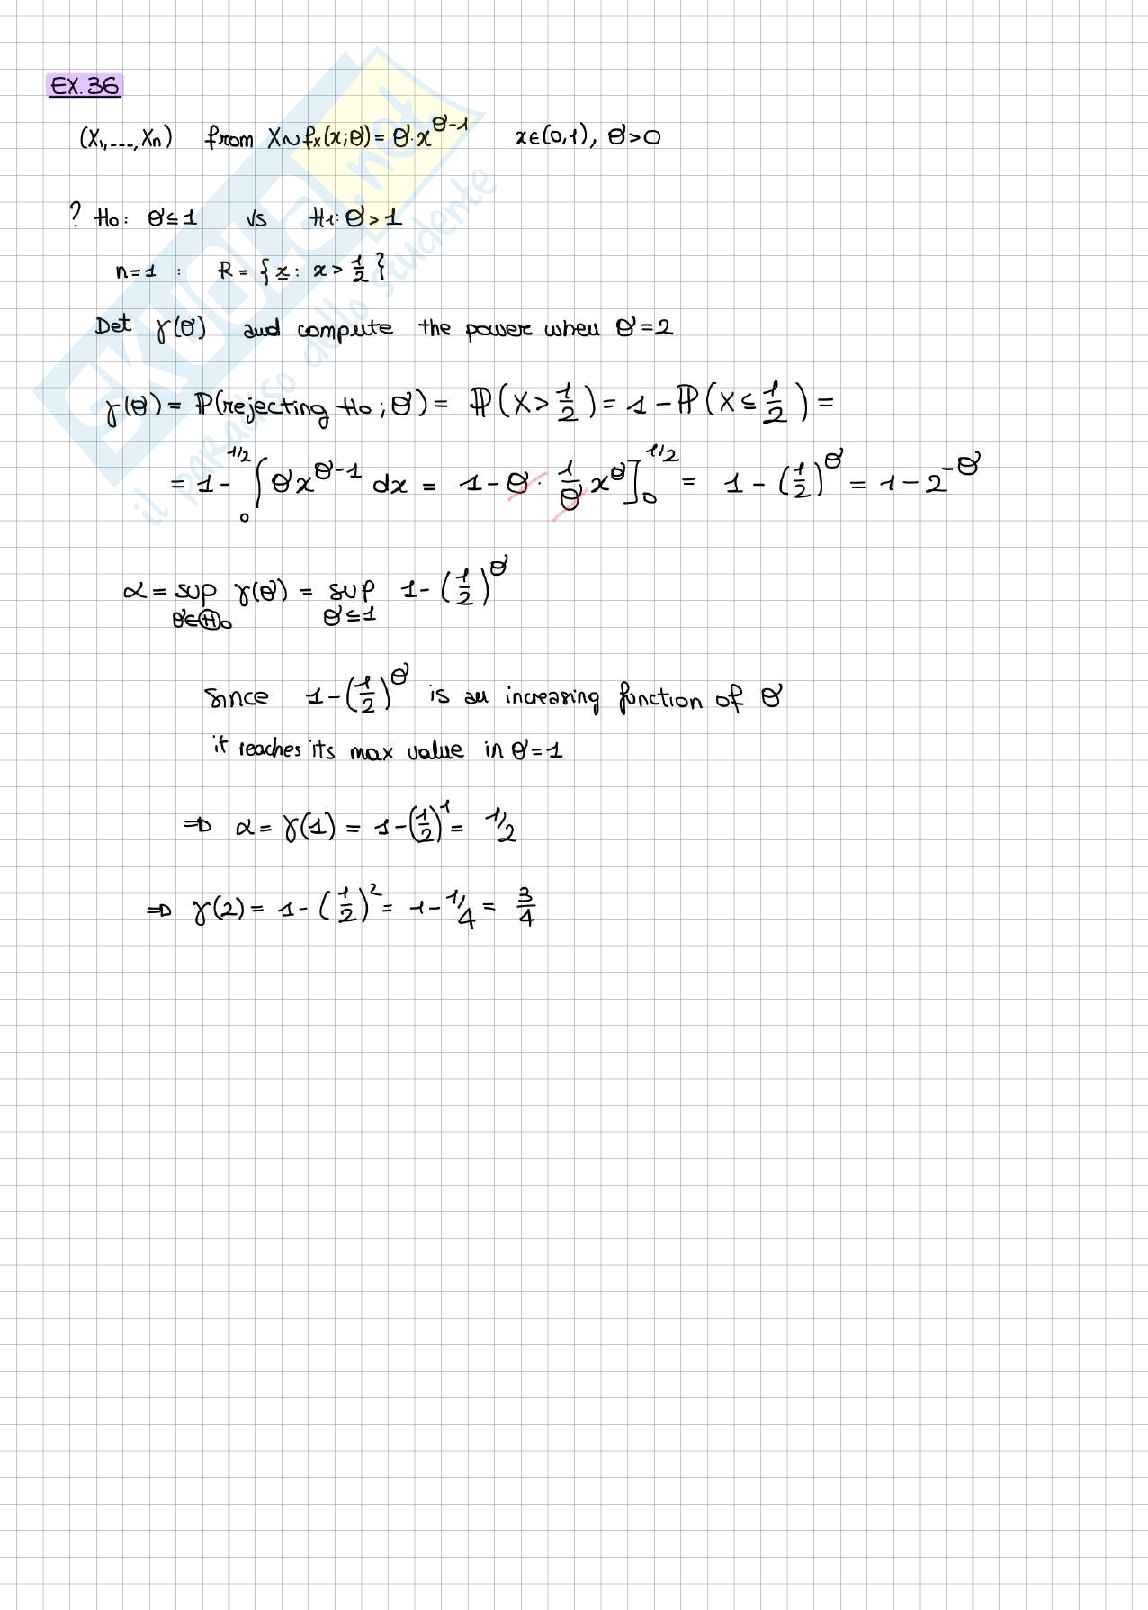 EX. 36
(X₁,---,Xn) from X~fx(x;θ) = θ·x^θ-1 x∈(0,1), θ>0
? H₀: θ≤1 vs H₁: θ>1
n=1 : R = {x: x > 1/2}
Det γ(θ) and compute the power when θ=2
γ(θ) = P(rejecting H₀; θ) = P(X > 1/2) = 1 - P(X ≤ 1/2) =
= 1 - ∫₀^1/2 θx^θ-1 dx = 1 - θ · 1/θ x^θ]₀^1/2 = 1 - (1/2)^θ = 1 - 2^-θ
α = sup θ∈Θ₀ γ(θ) = sup θ≤1 1 - (1/2)^θ
Since 1 - (1/2)^θ is an increasing function of θ
it reaches its max value in θ=1
⇒ α = γ(1) = 1 - (1/2)^1 = 1/2
⇒ γ(2) = 1 - (1/2)^2 = 1 - 1/4 = 3/4
SKUOLA.net
il paradiso dello studente